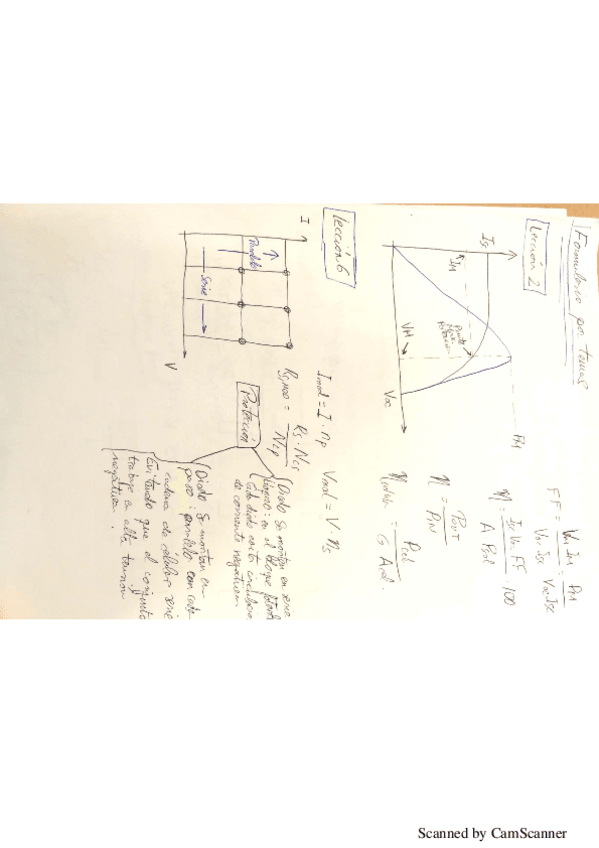 Formulario por temas
Lección 2
Isc
IM
Punto
VM
Voc
PM
FF = VM IM / Voc Isc = PM / Voc Isc
η = Isc Voc FF / A Prad · 100
η = Pout / PIN
η = Pel / G Acel
Lección 6
I
Paralelo
Serie
V
Imod = I · np
Vmod = V · ns
Rs,mod = Rs · Ncs / Ncp
Protección
Diodo Se montan en serie
bloqueo: en el bloque
Cada diodo evita circulación
de corriente negativa
Diodo Se montan en
paso: paralelo con cada
cadena de células serie
Evitando que el conjunto
trabaje a alta tensión
negativa.
Scanned by CamScanner